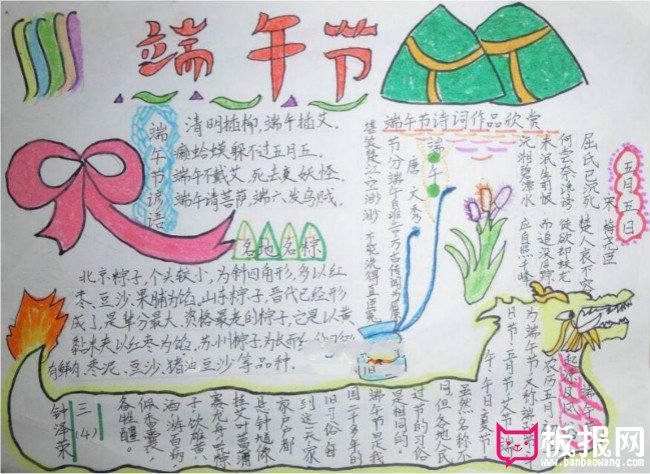 端午节
端午节谚语
清明插柳，端午插艾。
癞蛤蟆躲不过五月五。
端午不戴艾，死去变妖怪。
端午请菩萨，端六发乌贼。
各地名粽
北京粽子，个头较小，为斜四角形，多以红
枣、豆沙、果脯为馅，山东粽子，晋代已经形
成了，是举分最大，资格最老的粽子，它是以黄
黏米夹以红枣为馅，苏州粽子为长而
有鲜肉、枣泥、豆沙、猪油豆沙等品种。
端午节诗词作品欣赏
端午
唐 文秀
节分端午自谁言万古传闻为屈
堪笑楚江空渺渺 不能洗得直臣冤
五月五日
宋 梅尧臣
屈氏已沉死 楚人哀不容
何尝奈谗谤 徒欲却蛟龙
未泯生前恨 而追没后踪
沅湘碧潭水 应自照千峰
农历五月
为端午节又称端
月节、五月节、艾节
午、午日、夏节
虽然名称不
同但各地民
过节的习俗
是相同的。
端午节是我
国二千多年的
旧习俗，每
到这一天家
家户户都
是钟馗像
挂艾叶菖蒲
赛龙舟吃粽
子饮雄黄
酒游百病
佩香囊
备牲醴。
三（4）
钟泽荣
板报网
www.banbaowang.com